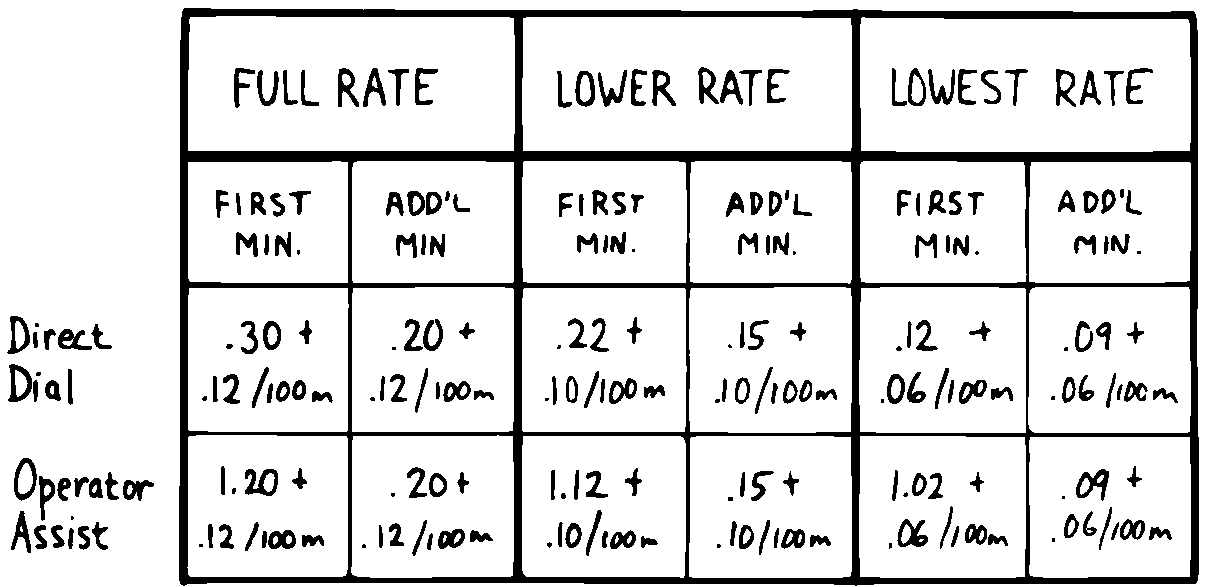 FULL RATE LOWER RATE LOWEST RATE
FIRST MIN. ADD'L MIN FIRST MIN. ADD'L MIN. FIRST MIN. ADD'L MIN.
Direct Dial .30 + .12/100m .20 + .12/100m .22 + .10/100m .15 + .10/100m .12 + .06/100m .09 + .06/100m
Operator Assist 1.20 + .12/100m .20+ .12/100m 1.12 + .10/100m .15+ .10/100m 1.02 + .06/100m .09 + .06/100m